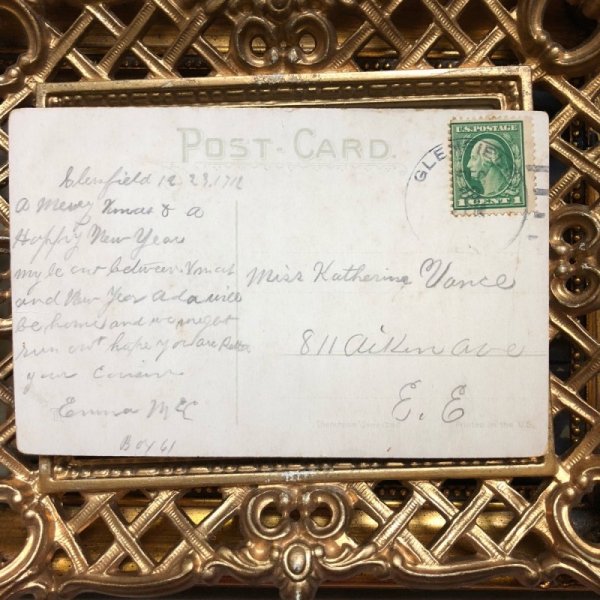 POST-CARD.
Glenfield 12, 23, 1912
A Merry Xmas & a
Happy New Year
between Xmas
and New Year Ada will
be home and we might
run out hope you are better
your Cousin
Emma McC
Box 61
U.S. POSTAGE
1 CENT 1
Miss Katherine Vance
811 Aiken Ave
E. E
Printed in the U.S.